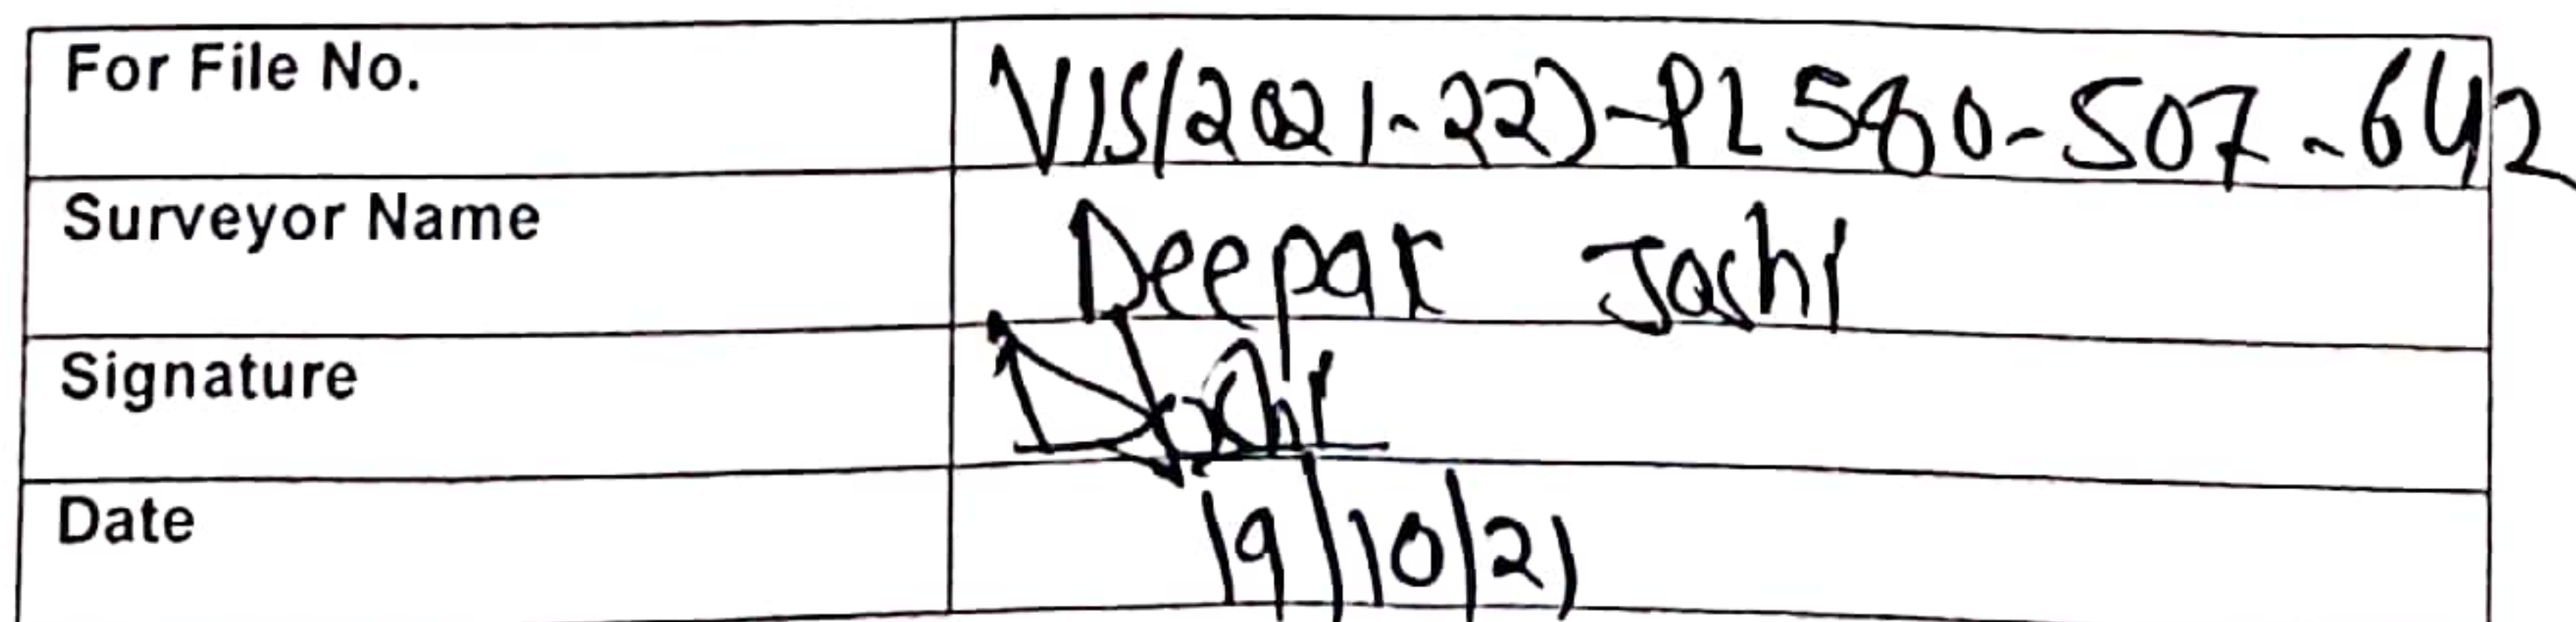 For File No. VIS(2021-22)-PL580-507-642
Surveyor Name Deepak Joshi
Signature DJoshi
Date 19/10/21